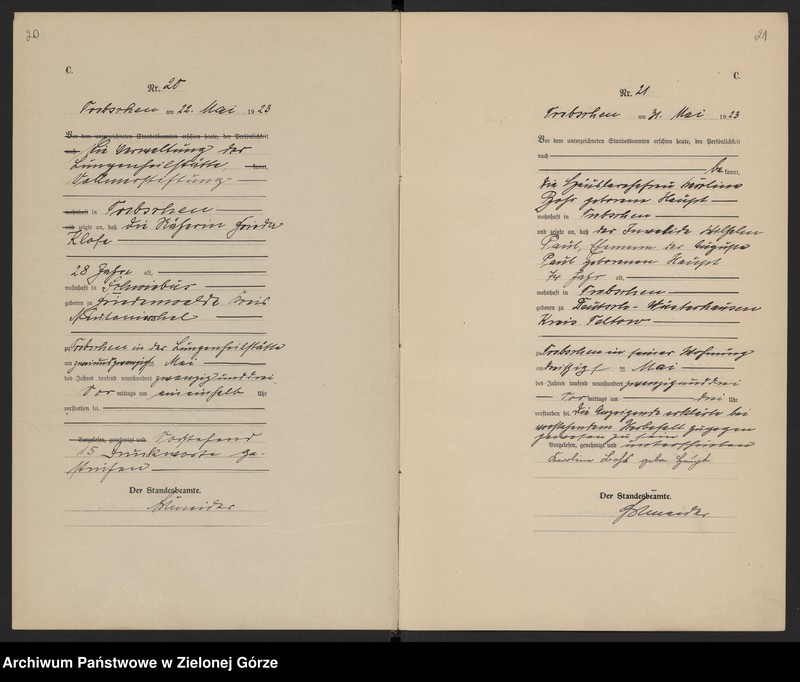 20
C.
Nr. 20
Trebschen am 22. Mai 1923
Vor dem unterzeichneten Standesbeamten erschien heute, der Persönlichkeit
nach die Verwaltung der
Lungenheilstätte kannt,
Vollmerstiftung
wohnhaft in Trebschen
und zeigte an, daß die Näherin Frieda
Klose
28 Jahre alt,
wohnhaft in Schwiebus
geboren zu Friedenwalde Kreis
zu Trebschen in der Lungenheilstätte
am zweiundzwanzigsten Mai
des Jahres tausend neunhundert zwanzigunddrei
Vor mittags um ein einhalb Uhr
verstorben sei.
Vorgelesen, genehmigt und Vorstehend
15 Druckworte ge-
strichen
Der Standesbeamte.
Schneider
21
C.
Nr. 21
Trebschen am 31. Mai 1923
Vor dem unterzeichneten Standesbeamten erschien heute, der Persönlichkeit
nach
be kannt,
die Häuslerehefrau Karoline
geborene Haupt
wohnhaft in Trebschen
und zeigte an, daß der Invalide Wilhelm
Paul, Ehemann der Auguste
Paul geborenen Haupt
74 Jahr alt,
wohnhaft in Trebschen
geboren zu Deutsch-Wusterhausen
Kreis Teltow
zu Trebschen in seiner Wohnung
am dreißigst en Mai
des Jahres tausend neunhundert zwanzigunddrei
Vor mittags um drei Uhr
verstorben sei. Die Anzeigende erklärte bei
vorstehendem Sterbefall zugegen
gewesen zu sein
Vorgelesen, genehmigt und unterschrieben
Karoline gebr Haupt
Der Standesbeamte.
Schneider
Archiwum Państwowe w Zielonej Górze